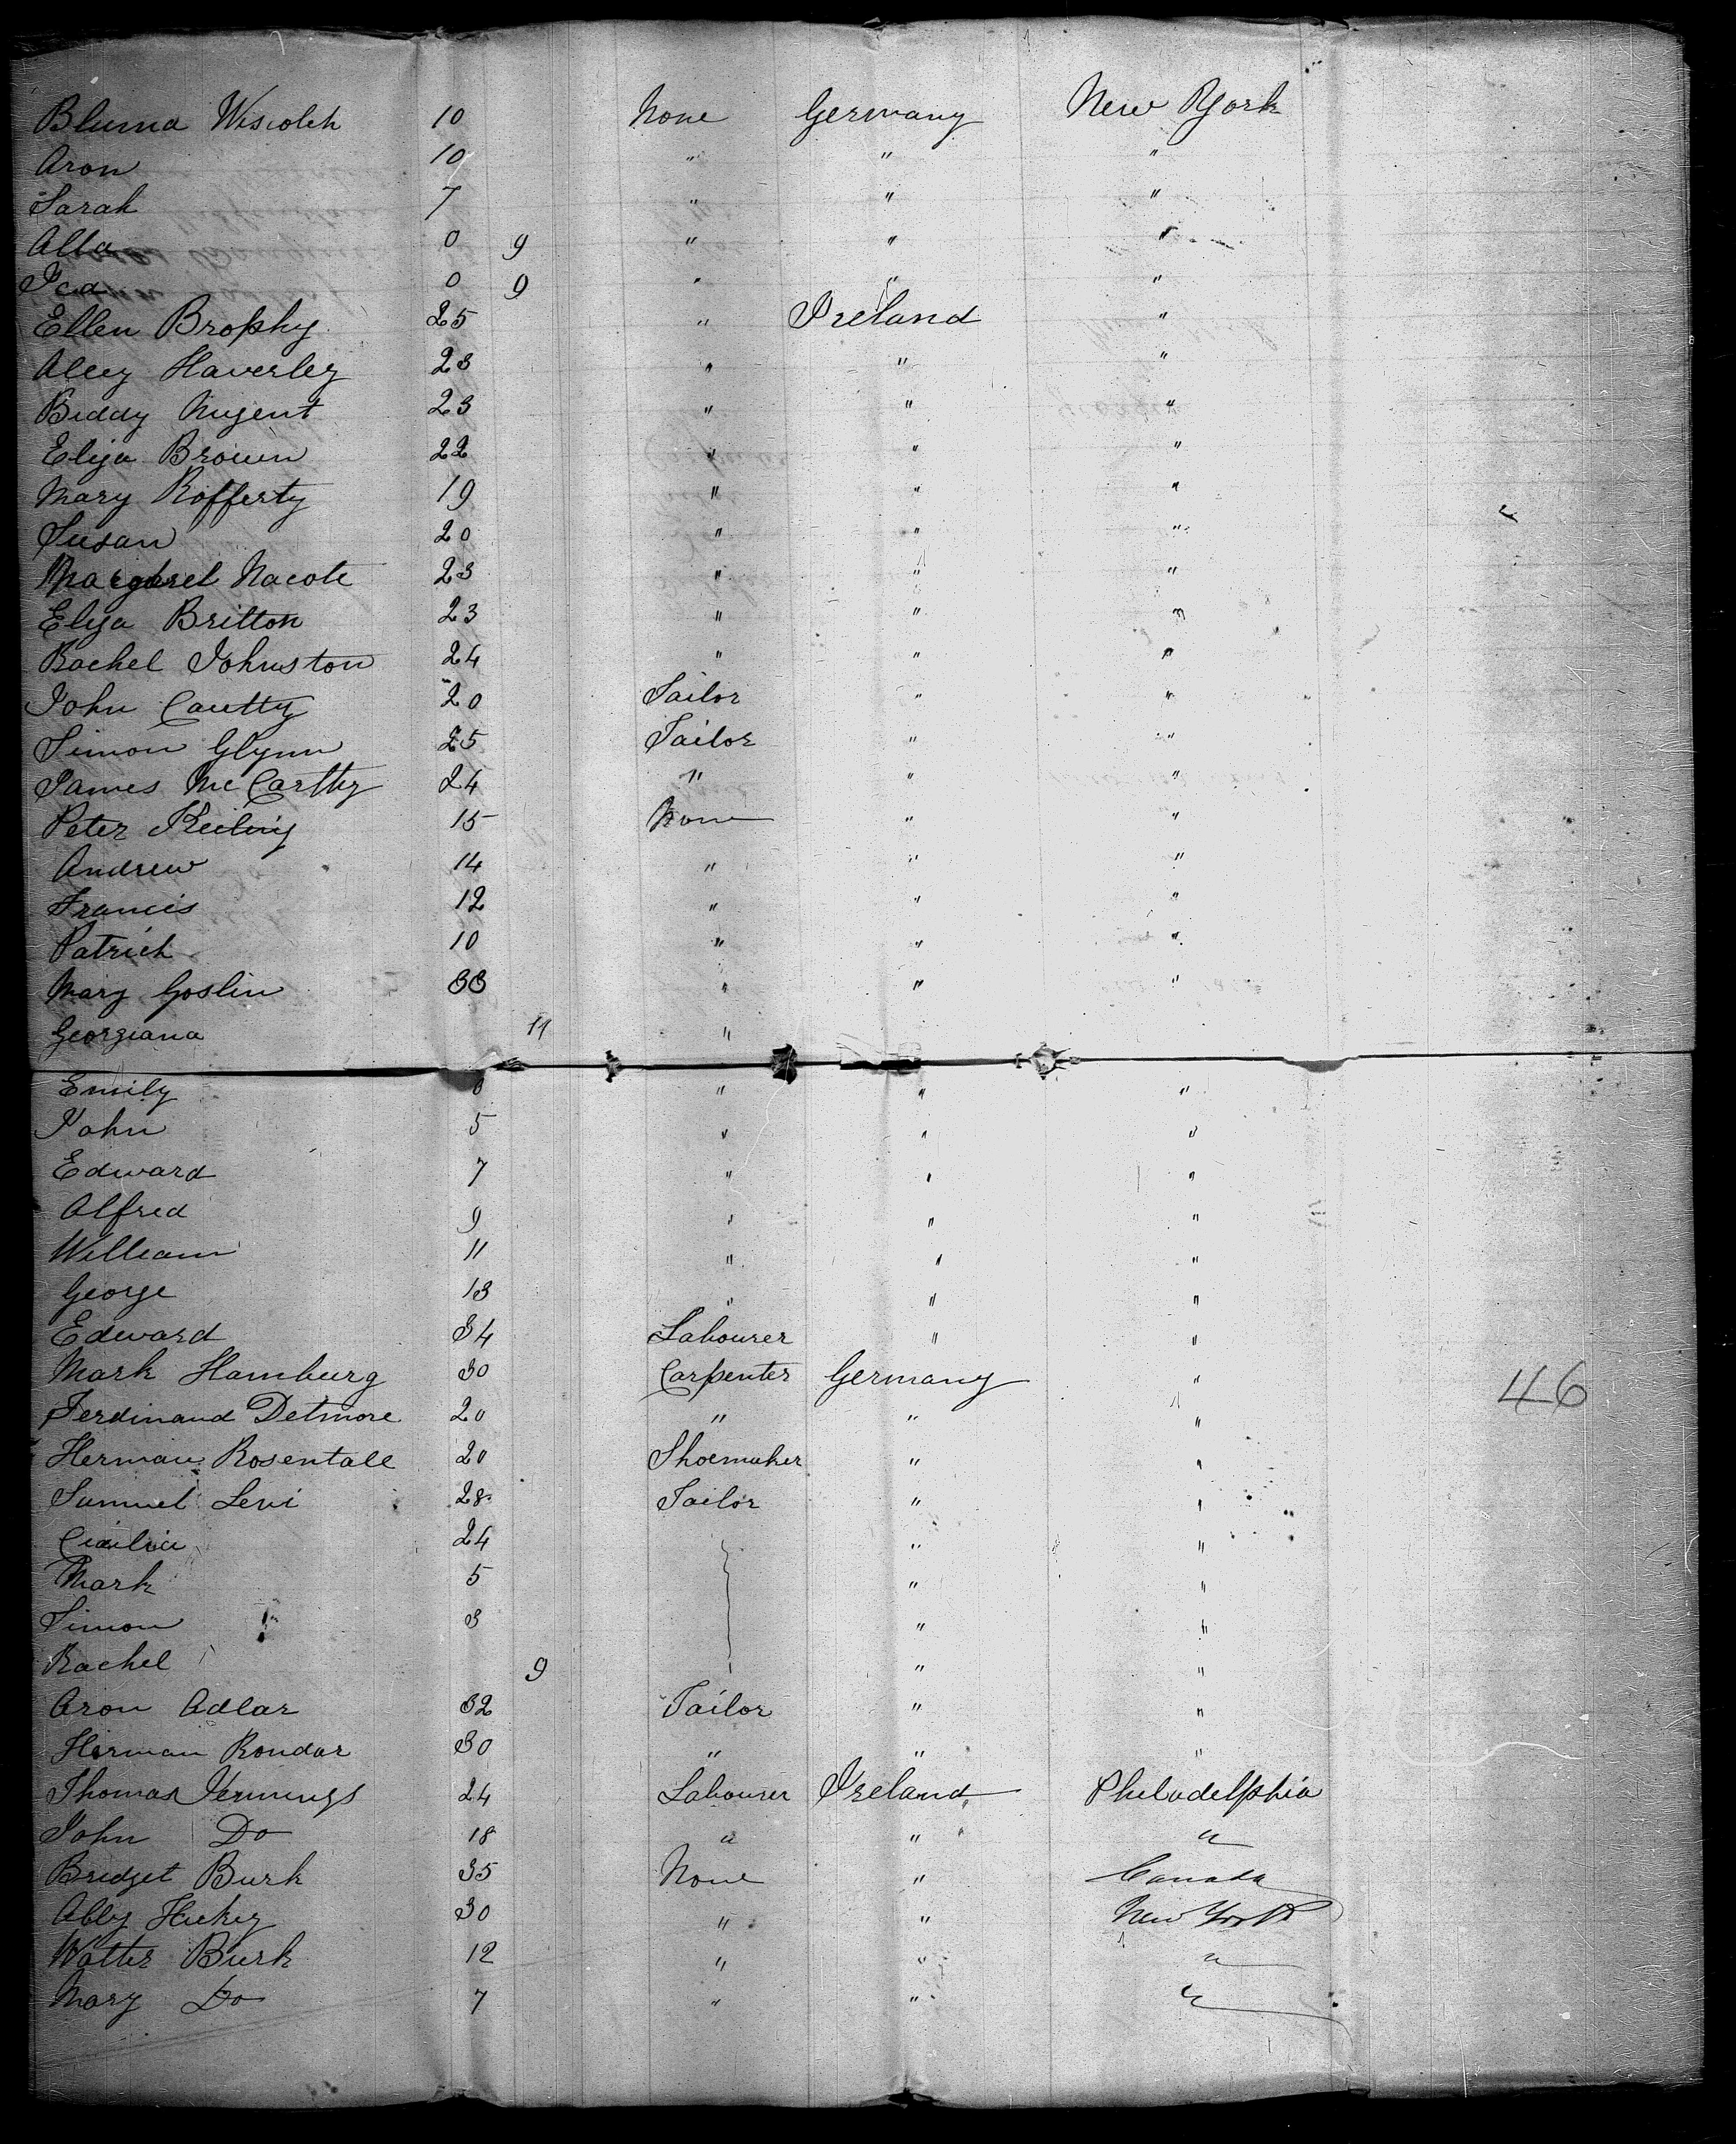 Bluma Wisiolek 10 None Germany New York
Aron 10 " " "
Sarah 7 " " "
Alla 0 9 " " "
Ica 0 9 " " "
Ellen Brophy 25 " Ireland "
Alley Haverley 23 " " "
Biddy Nugent 23 " " "
Eliza Brown 22 " " "
Mary Rofferty 19 " " "
Susan 20 " " "
Margaret Nacote 23 " " "
Eliza Britton 23 " " "
Rachel Johnston 24 " " "
John Cautty 20 Tailor " "
Simon Glynn 25 Tailor " "
James McCarthy 24 " " "
Peter Keiling 15 None " "
Andrew 14 " " "
Francis 12 " " "
Patrick 10 " " "
Mary Goslin 33 " " "
Georgiana 11 "
Emily " " "
John 5 " " "
Edward 7 " " "
Alfred 9 " " "
William 11 " " "
George 13 " " "
Edward 34 Labourer " "
Mark Hamburg 30 Carpenter Germany " 46
Ferdinand Detmore 20 " " "
Herman Rosentall 20 Shoemaker " "
Samuel Levi 28 Tailor " "
24 " "
Mark 5 " "
Simon 3 " "
Rachel 9 " "
Aron Adlar 32 Tailor " "
Herman Rondar 30 " " "
Thomas Jennings 24 Labourer Ireland Philadelphia
John Do 18 " " "
Bridget Burk 35 None " Canada
Abby Hickey 30 " " New York
Watter Burk 12 " " "
Mary Do 7 " " "